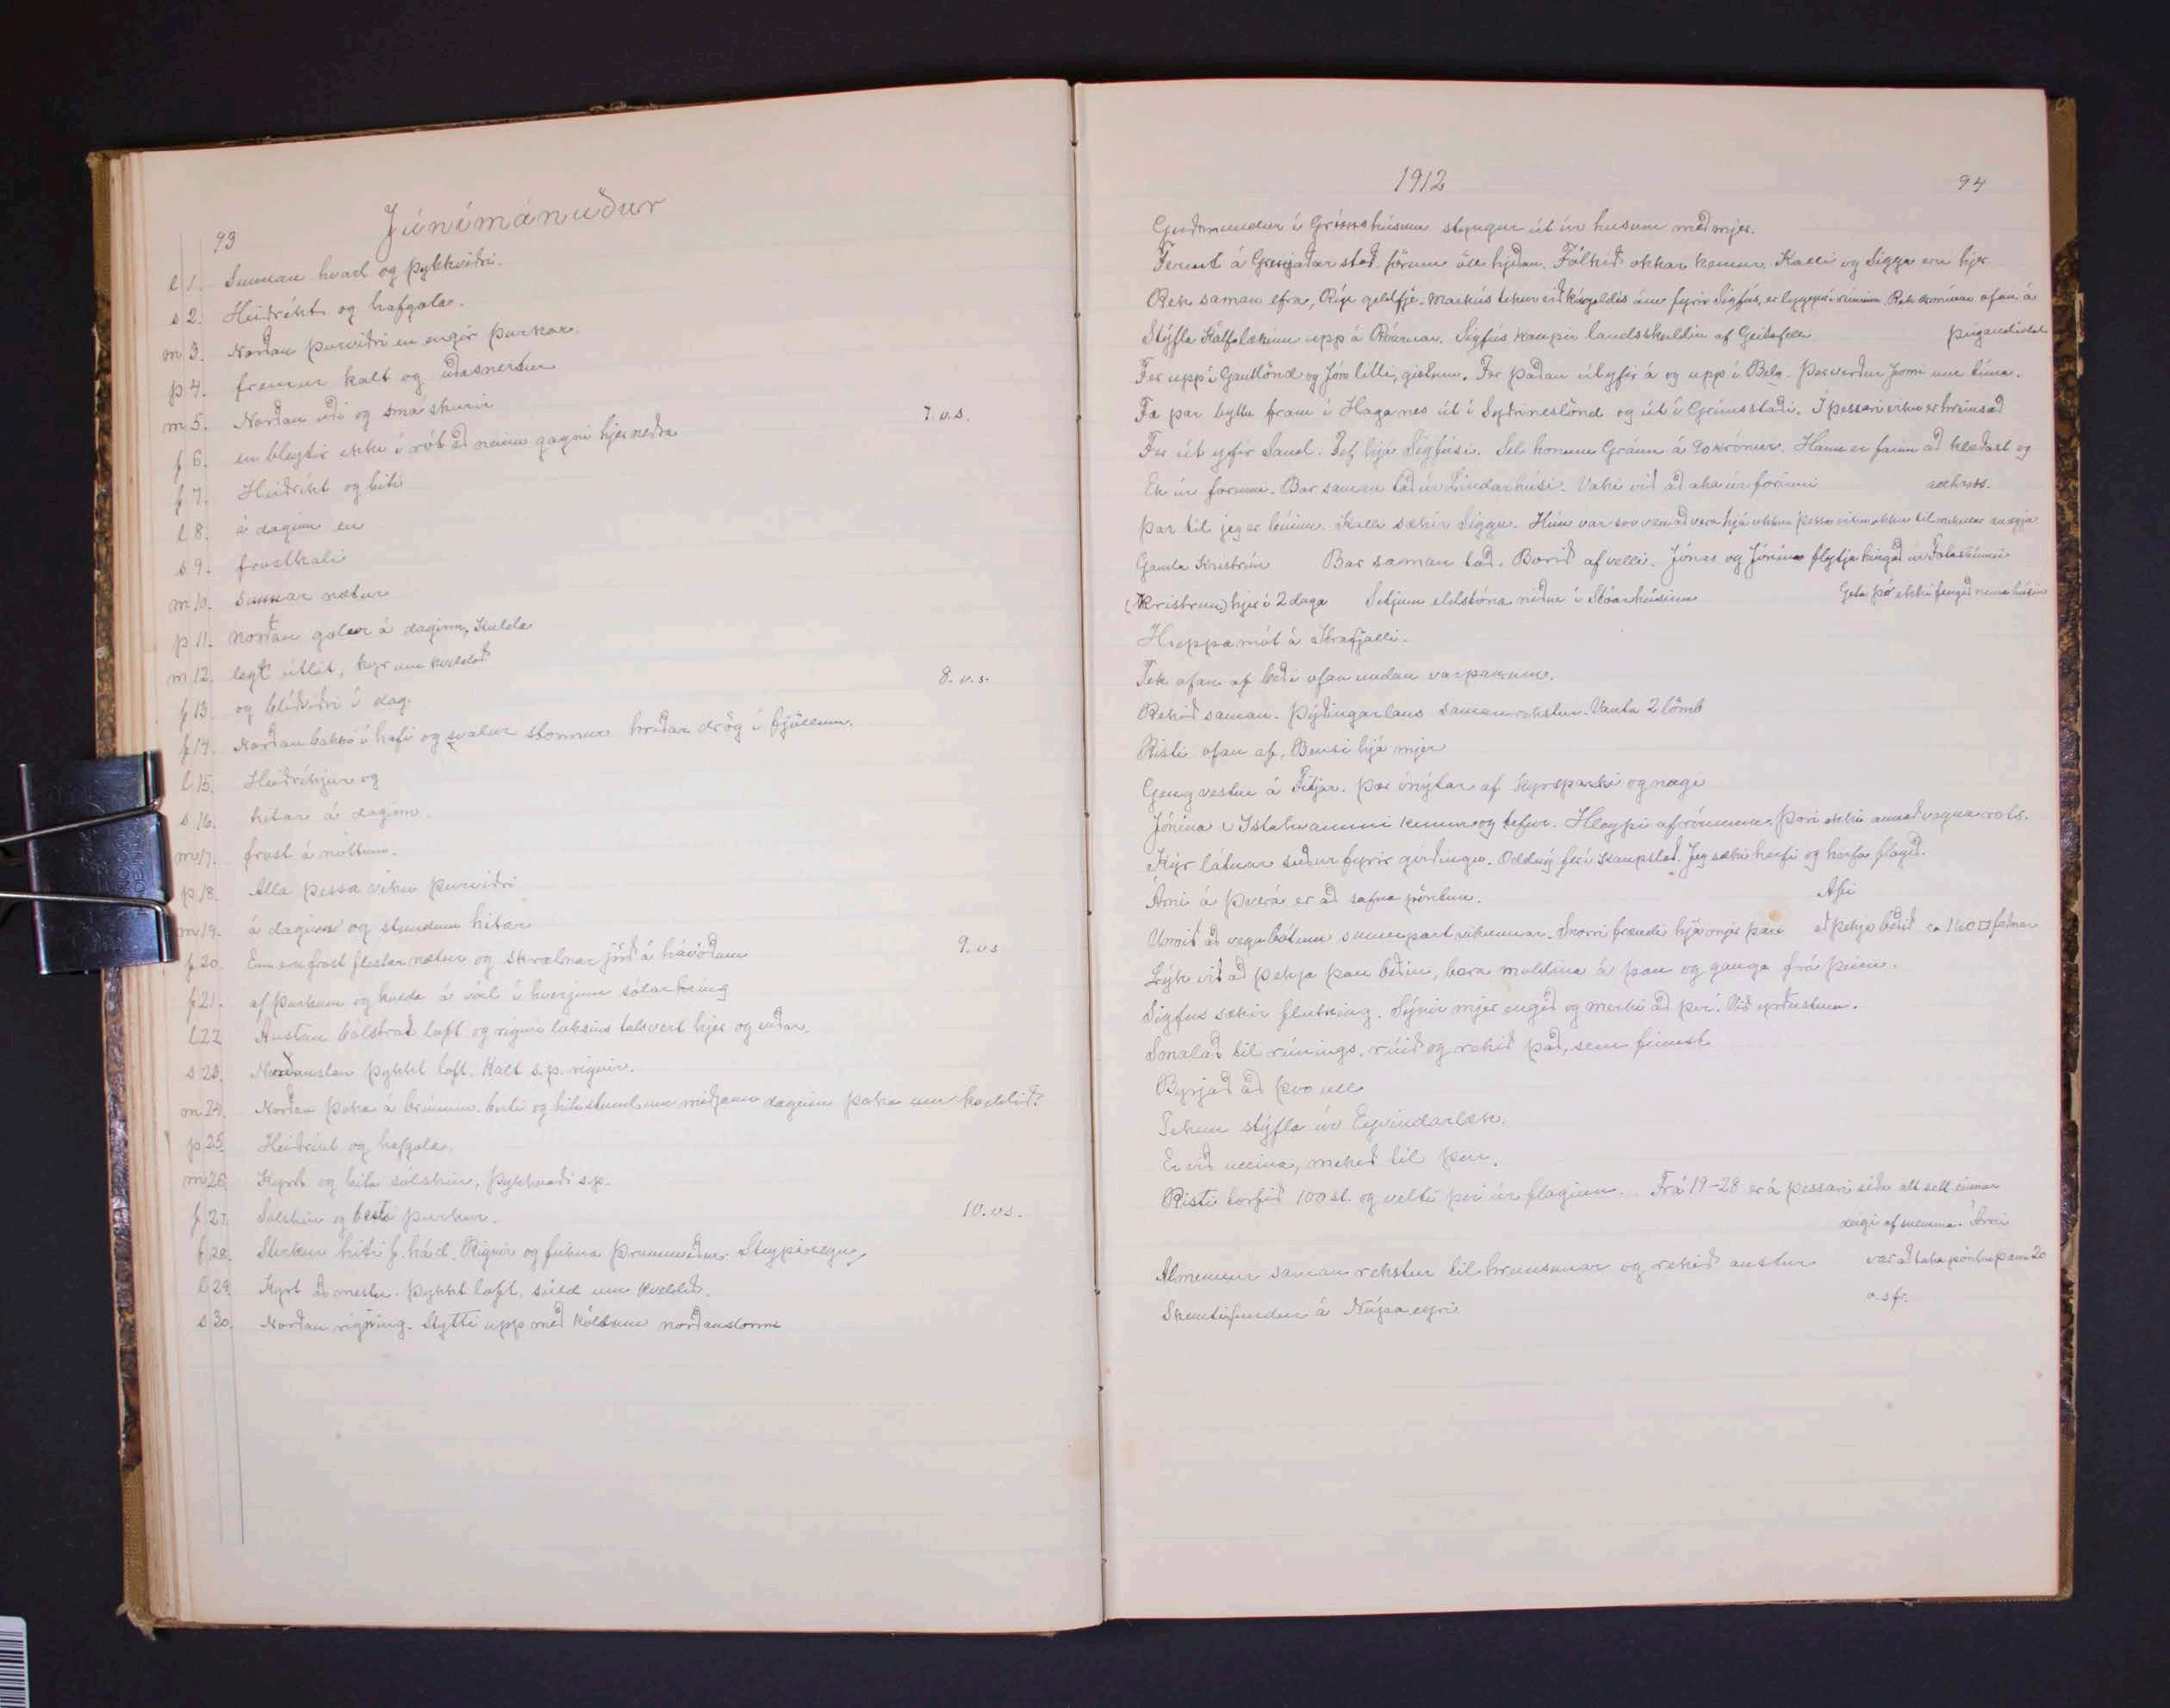 93
Júnímánuður
l 1. Sunnan hvast og þykkviðri.
s 2. Heiðríkt og hafgola.
m 3. Norðan þurviðri en engir þurkar.
þ 4. fremur kalt og
m 5. Norðan úði og smá skurir
f 6. en bleytir ekki í rót að neinu gagni hjer neðra 7. v.s.
f 7. Heiðríkt og hiti
l 8. á daginn en
s 9. frostkali
m 10. sumar nætur
þ 11. norðan golur á daginn, kulda
m 12. legt útlit, kyr um kveldið
f 13. og blíðviðri í dag. 8. v.s.
f 14. Norðan bakki í hafi og svalur stormur hríðar drög í fjöllum.
l 15. Heiðríkjur og
s 16. hitar á daginn.
m 17. frost á nóttum.
þ 18. Alla þessa viku þurviðri
m 19. á daginn og stundum hitar
f 20. Enn eru frost flestar nætur og skrælnar jörð á hávöðum 9. v.s
f 21. af þurkum og kulda á víxl í hverjum sólarhring
l 22. Austan bólstrað loft og rignir loksins talsvert hjer og víðar.
s 23. Norðaustan þykkt loft. Kalt s.p. rignir.
m 24. Norðan þoka á brúnum. birti og hita stund um miðjann daginn þoka um kveldið.
þ 25. Heiðríkt og hafgola.
m 26. Kyrt og heita sólskin, þykknaði s.p.
f 27. Sólskin og besti þurkur. 10. v.s.
f 28. Sterkur hiti f. hád. Rignir og fjekna þrumuveður. Steypiregn.
l 29. Kyrt að mestu. þykkt loft, súld um kveldið.
s 30. Norðan rigning. Stytti upp með köldum norðanstormi
1912
94
Guðmundur í Grímshúsum styngur út úr húsum með mjer.
Fermt á Grenjaðarstað. förum öll hjeðan. Fólkið okkar kemur. Kalli og Sigga eru hjer
Rek saman efra, Rýi geldfje. Markús tekur við fyrir Sigfús, er liggur í rúminu. ofan á
Stýfla Kálfalækinn upp á Rásirnar. Sigfús kaupir landsskuldin af Geitafelli
Fer upp í Gautlönd og Jóni litli, gistum. Fer þaðan út yfir á og upp í Belg. Þar verður Jonni um tíma.
Fæ þar byttu fram í Haganes út í Syðrineslönd og út í Grímsstaði. Í þessari viku er hreinsað
Fer út yfir Sand. Tef hjá Sigfúsi. Sel honum Grána á 90 krónur. Hann er farinn að klæðast og
Ek úr forinni. Bar saman tað úr Lindarhúsi. Vaki við að aka úr forinni allhress.
þar til jeg er búinn. Kalli sækir Siggu. Hún var svo væn að vera hjá okkur þessa viku okkur til mikillar ánægju
Gamla Kristrún Bar saman tað. Borið af velli. Jónas og Jónína flytja hingað úr
(Kristrún) hjer í 2 daga Setjum eldstóna niður í Stóarhúsinu Geta þó ekki fengið nema húsin
Hreppamót á Skrafjalli.
Tek ofan af beði ofan undan varpanum.
Rekið saman. Þýðingarlaus saman rekstur. Vanta 2 lömb
Risti ofan af, Bensi hjá mjer
Geng vestur á Fitjar. Þær ónýtar af kyrsparki og nagi
Jónína í Ystahvammi kemur og tefur. Hleypi af rúnum. Þori ekki annað vegna rots.
Kýr látnar suður fyrir girðingu. Oddný fer í Kaupstað. Jeg sæki herfi og herfa flagið.
Árni á Þverá er að safna pöntun. Afi
Unnið að vegabótum sumpart vikunnar. Snorri frændi hjá mjer þar að þekja beðið ca 160 □ faðmar
Lýk við að þekja þau beðin, bera moldina á þau og ganga frá þeim.
Sigfus sækir flutning. Sýnir mjer engið og merki að því. Við yrðustum.
Smalað til rúnings. rúið og rekið það, sem finnst
Byrjað að þvo ull
Tekin stýfla úr Eyvindarlæk.
Er við ullina, mokað til þess.
Risti torfið 100 st. og velti því úr flaginu. Frá 19-28 er á þessari síðu alt sett einum
degi of snemma. Árni
Almennur saman rekstur til hreinsunar og rekið austur var að taka pöntun þann 20
o.s.fr.
Skemtifundur á Núpaeyri